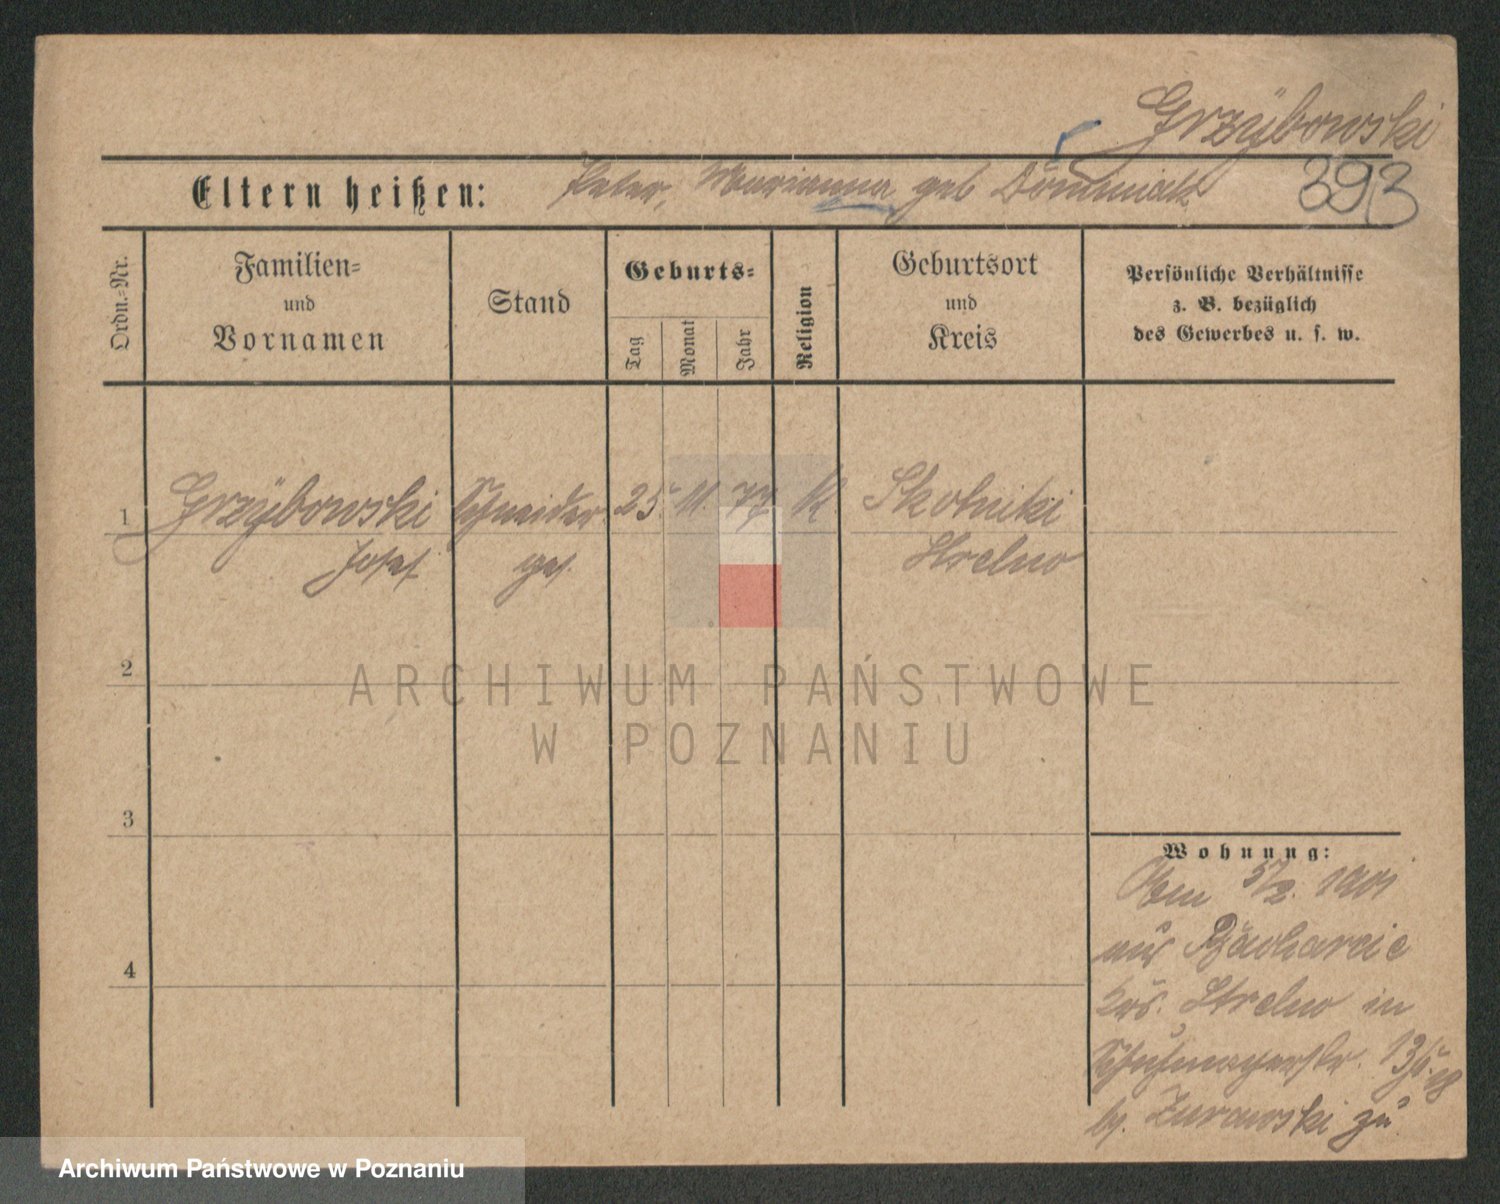 Grzybowski
Eltern heißen: Peter, Marianna geb
393
Ordn.=Nr.
Familien=
und
Vornamen
Stand
Geburts=
Tag
Monat
Jahr
Religion
Geburtsort
und
Kreis
Persönliche Verhältnisse
z. B. bezüglich
des Gewerbes u. s. w.
1 Grzybowski Schneider 25. 11. 77 K Skolnitki
Josef ges. Strelno
2
ARCHIWUM PAŃSTWOWE
W POZNANIU
3
4
Wohnung:
Am 5/2. 1901
aus
Krs. Strelno in
Schuhmacherstr.
by. Zurawski zu
Archiwum Państwowe w Poznaniu